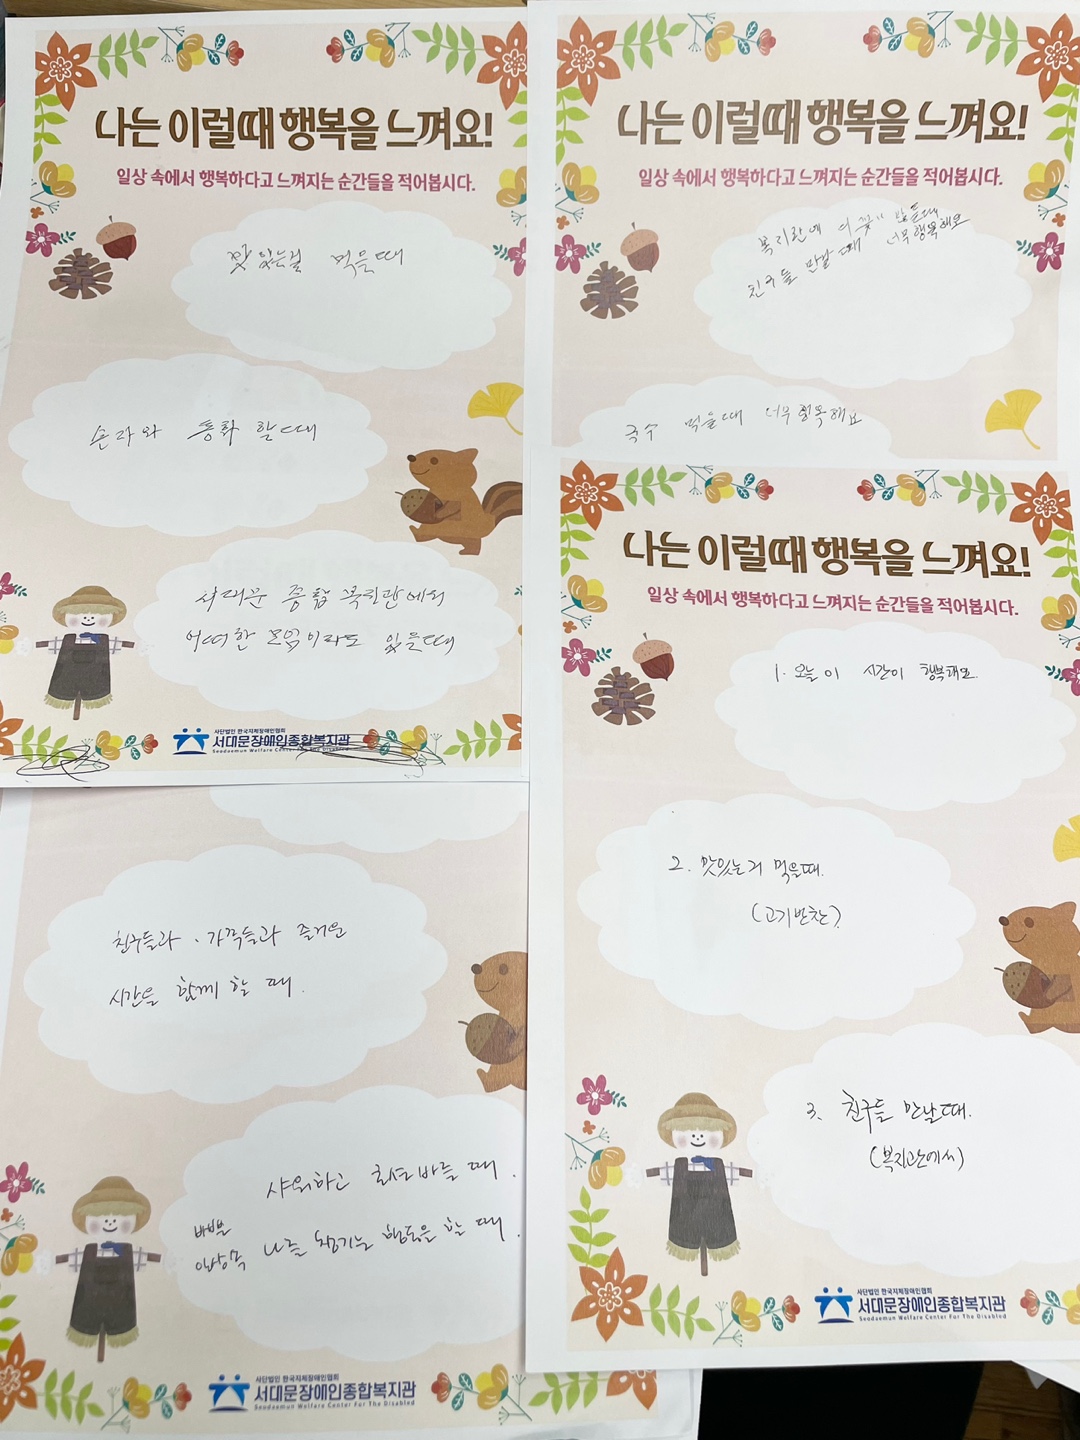 나는 이럴때 행복을 느껴요!
일상 속에서 행복하다고 느껴지는 순간들을 적어봅시다.
맛있는걸 먹을때
손자와 통화 할때
서대문 종합 복지관에서
어떠한 모임이라도 있을때
사단법인 한국지체장애인협회
서대문장애인종합복지관
Seodaemun Welfare Center For The Disabled
나는 이럴때 행복을 느껴요!
일상 속에서 행복하다고 느껴지는 순간들을 적어봅시다.
친구들 만날 때 너무 행복해요
국수 먹을때 너무 행복해요
친구들과 · 가족들과 즐거운
시간을 함께 할 때.
샤워하고 로션바를 때.
바쁜
일상속 나를 챙기는 행동을 할 때.
사단법인 한국지체장애인협회
서대문장애인종합복지관
Seodaemun Welfare Center For The Disabled
나는 이럴때 행복을 느껴요!
일상 속에서 행복하다고 느껴지는 순간들을 적어봅시다.
1. 오늘 이 시간이 행복해요.
2. 맛있는거 먹을때.
(고기반찬)
3. 친구들 만날때.
(복지관에서)
사단법인 한국지체장애인협회
서대문장애인종합복지관
Seodaemun Welfare Center For The Disabled